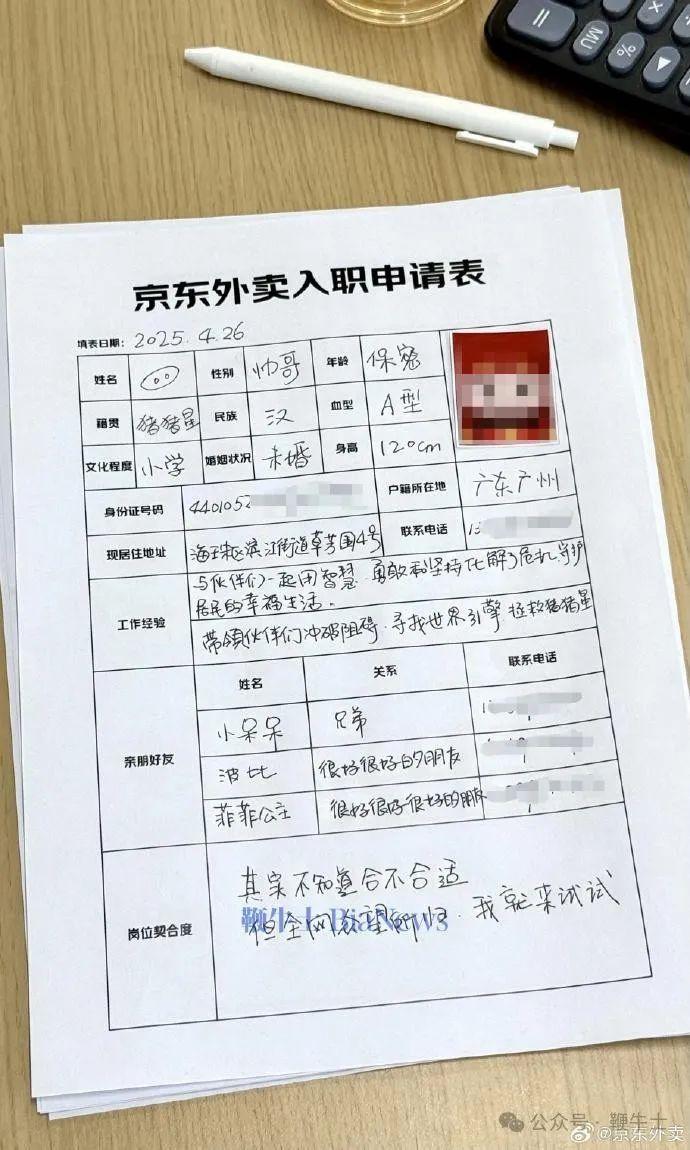 京东外卖入职申请表
填表日期: 2025.4.26
姓名 性别 帅哥 年龄 保密
籍贯 猪猪星 民族 汉 血型 A型
文化程度 小学 婚姻状况 未婚 身高 120cm
身份证号码 4401052 户籍所在地 广东广州
现居住地址 海珠区滨江街道草芳围4号 联系电话 13
工作经验 与伙伴们一起用智慧、勇敢和坚持化解了危机,守护
居民的幸福生活。
带领伙伴们冲破阻碍、寻找世界引擎 拯救猪猪星
亲朋好友 姓名 关系 联系电话
小呆呆 兄弟 1
波比 很好很好的朋友
菲菲公主 很好很好很好的朋友
岗位契合度
其实不知道合不合适
但全网众望所归、我就来试试
鞭牛士 BiaNews
公众号 · 鞭牛士
@京东外卖
MU
%
=